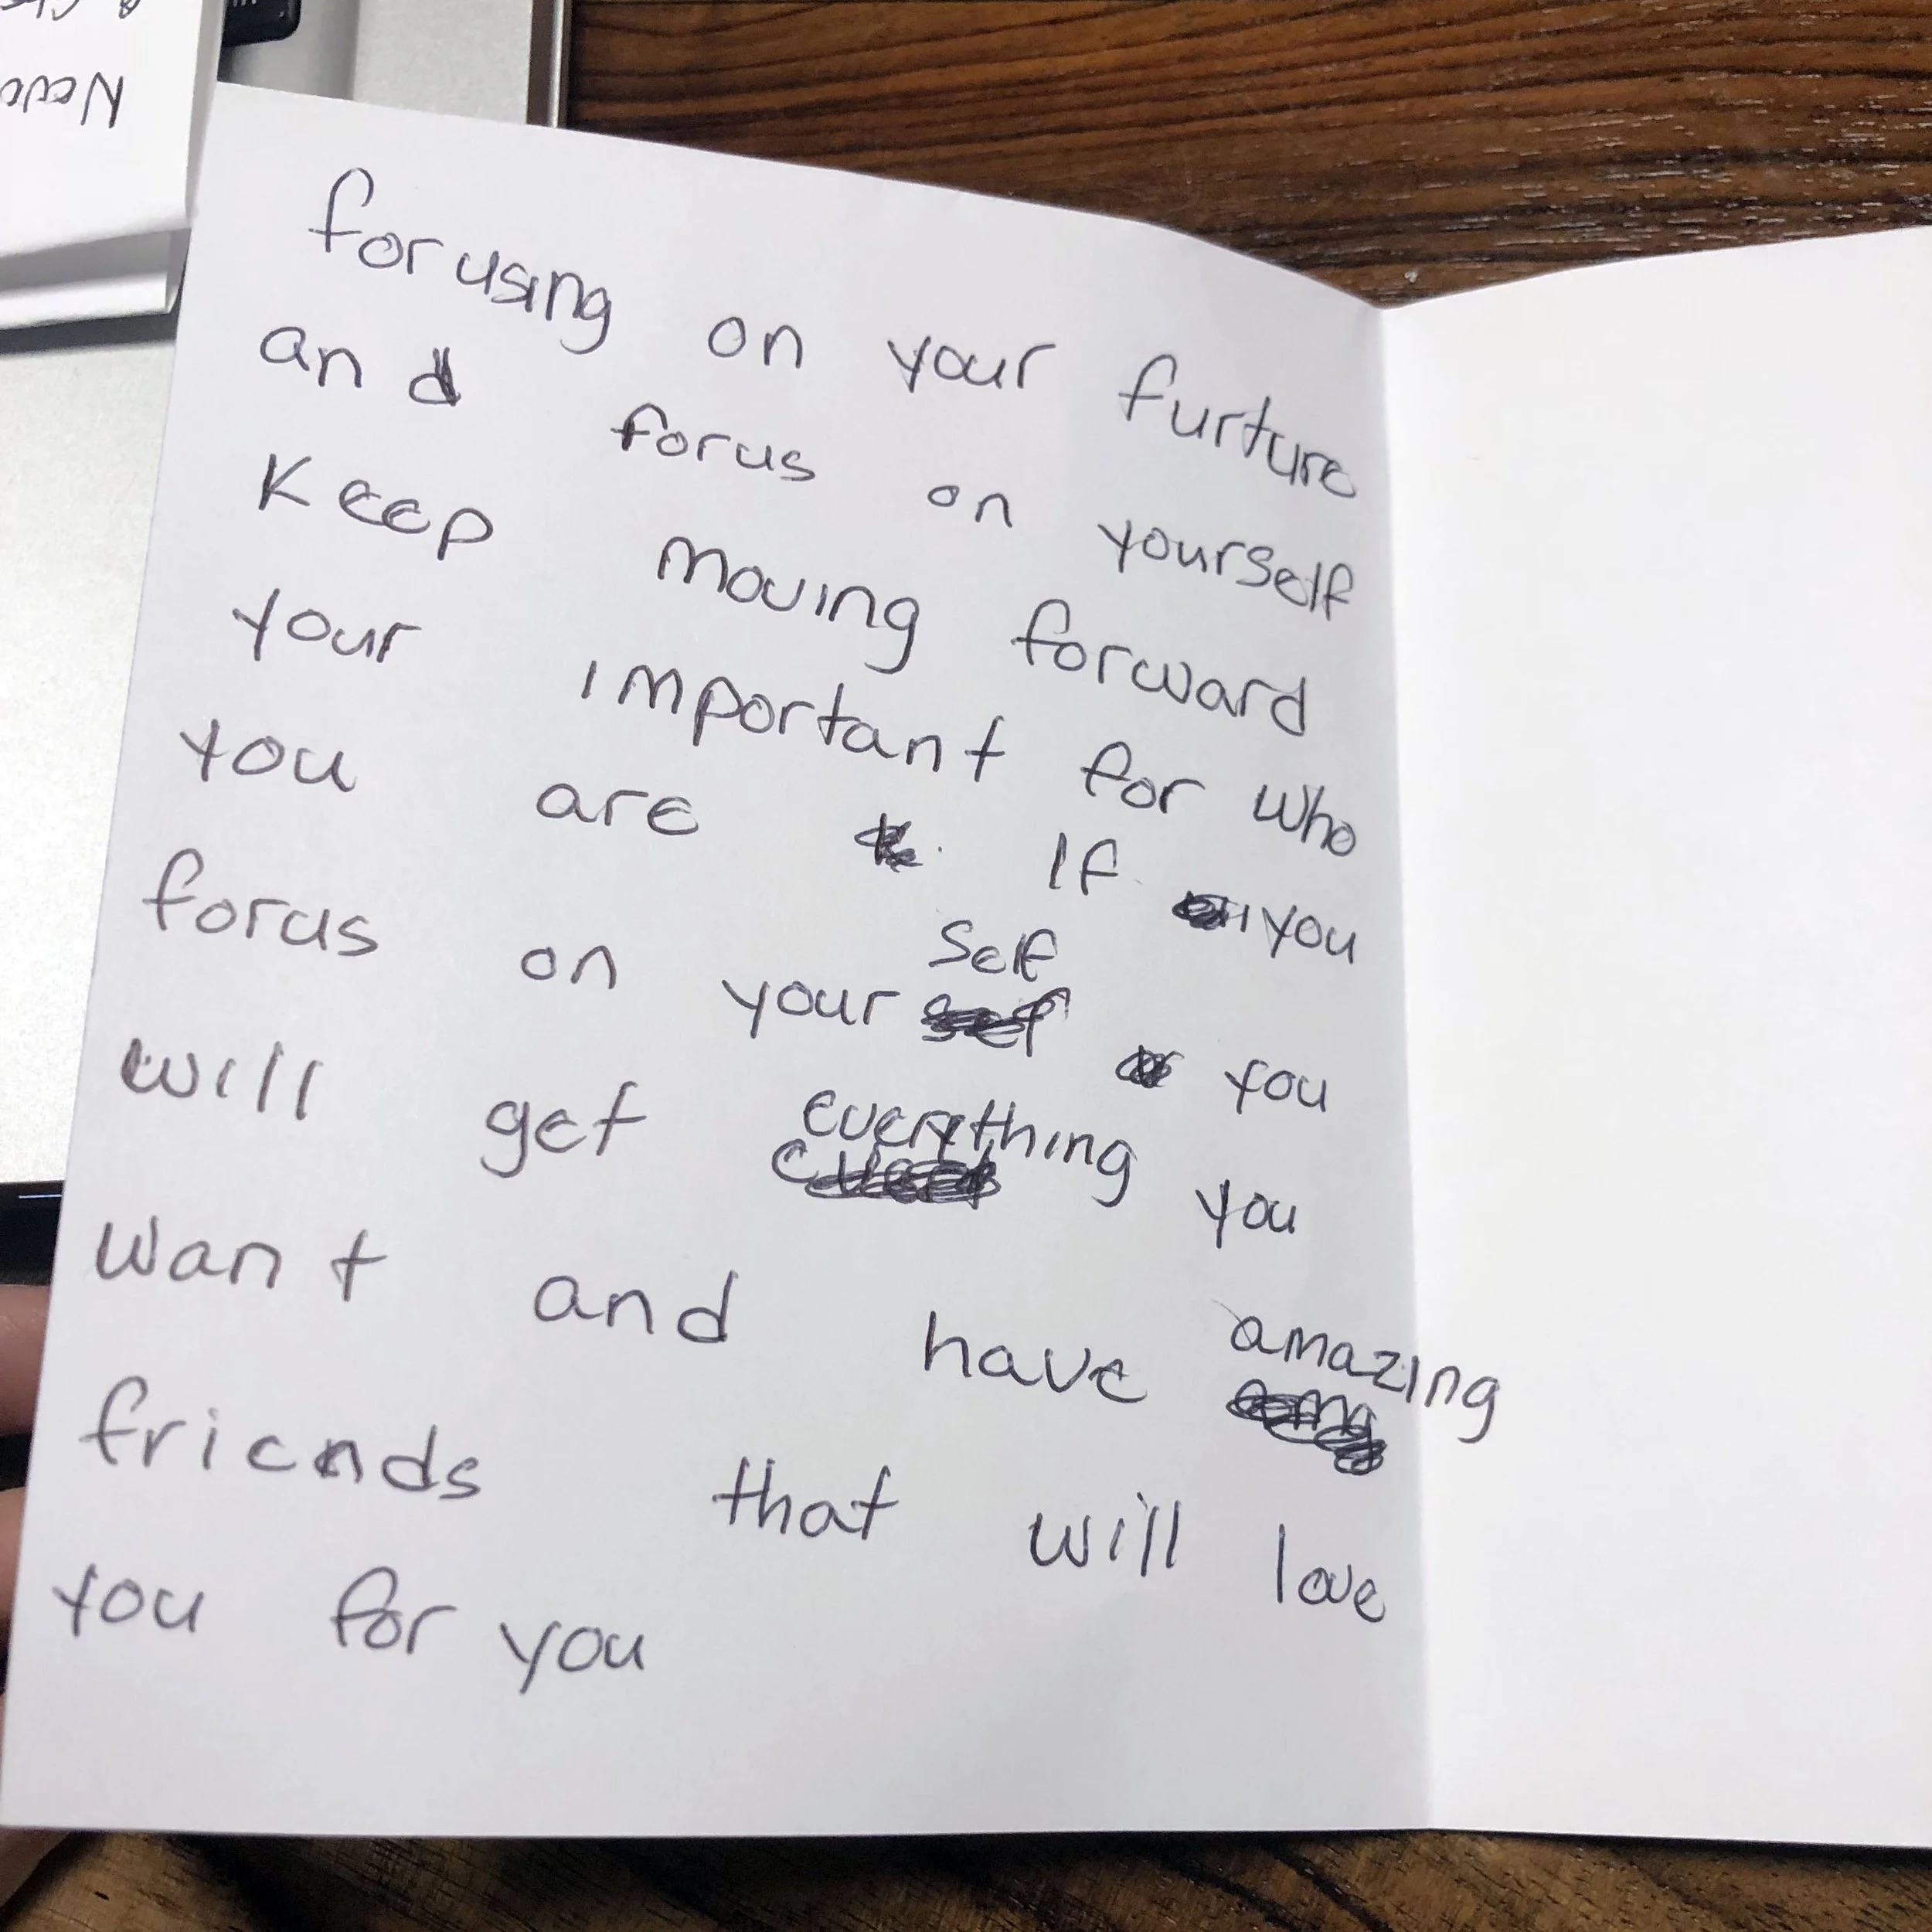 Neve
forusing on your furture
and forus on yourself
Keep moving forward
your important for who
you are If you
forus on your self you
will get everything you
want and have amazing
friends that will love
you for you